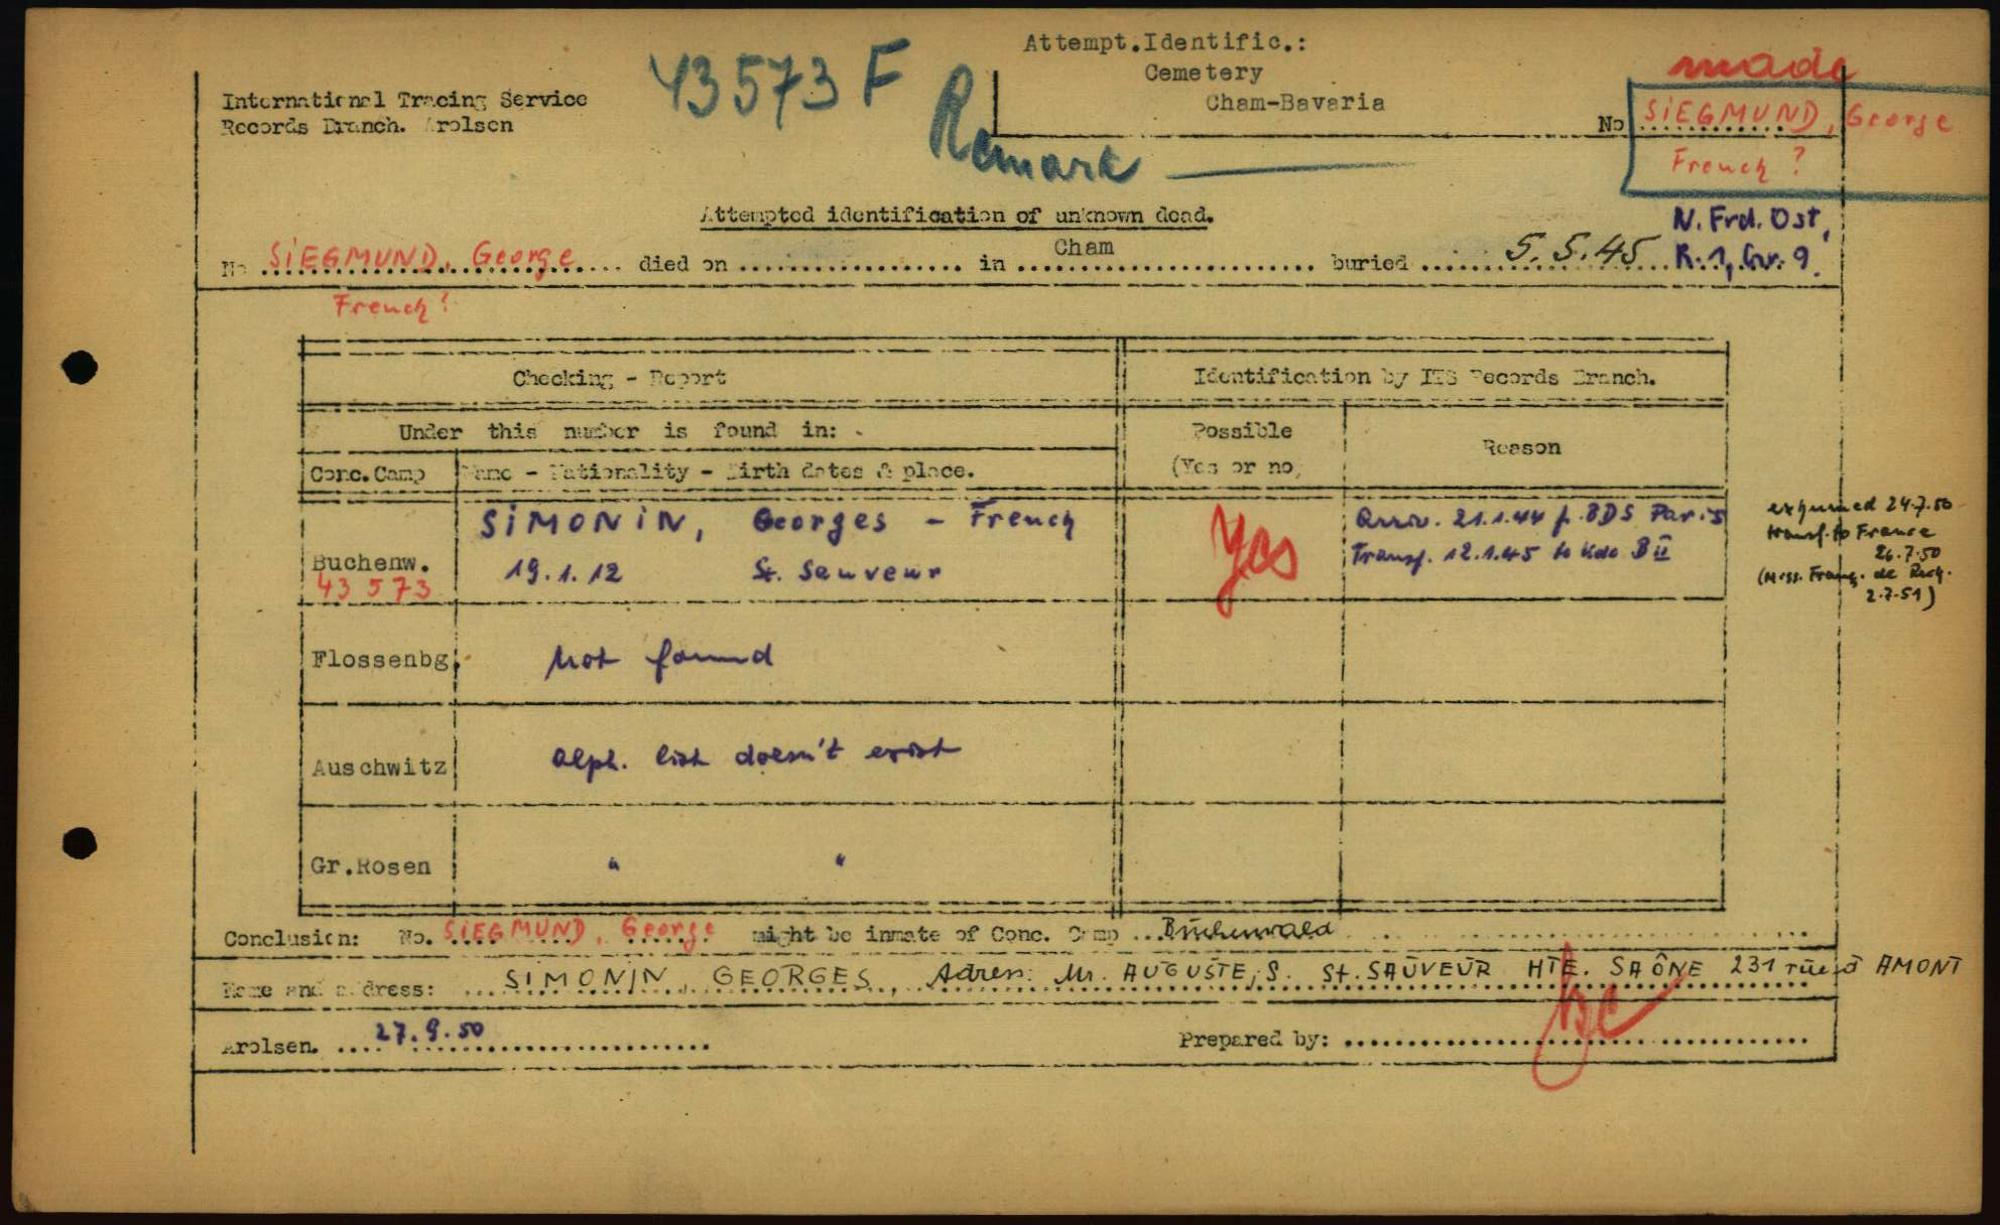 Attempt.Identific.:
Cemetery
Cham-Bavaria
43573 F
Remark
made
International Tracing Service
Records Branch. Arolsen
No SIEGMUND, George
French ?
Attempted identification of unknown dead.
N. Frd. Ost,
No SIEGMUND, George died on .................. in Cham buried 5.5.45 R. 1, Gr. 9.
French?
Checking - Report
Identification by ITS Records Branch.
Under this number is found in:
Possible
(Yes or no)
Reason
Conc.Camp
Name - Nationality - Birth dates & place.
Buchenw.
43573
SIMONIN, Georges - French
19.1.12 St. Sauveur
Yes
Arriv. 21.1.44 f. BDS Paris
Transf. 12.1.45 to Kdo B II
exhumed 24.7.50
transf. to France
26.7.50
(Miss. Franç. de Rech.
2.7.51)
Flossenbg.
Not found
Auschwitz
Alph. list doesn't exist
Gr.Rosen
" "
Conclusion: No. SIEGMUND, George might be inmate of Conc. Camp ...Buchenwald
Name and address: SIMONIN, GEORGES, Adress: Mr. AUGUSTE, S. St. SAUVEUR HTE. SAÔNE 231 rue d'AMONT
Arolsen. 27.9.50
Prepared by: